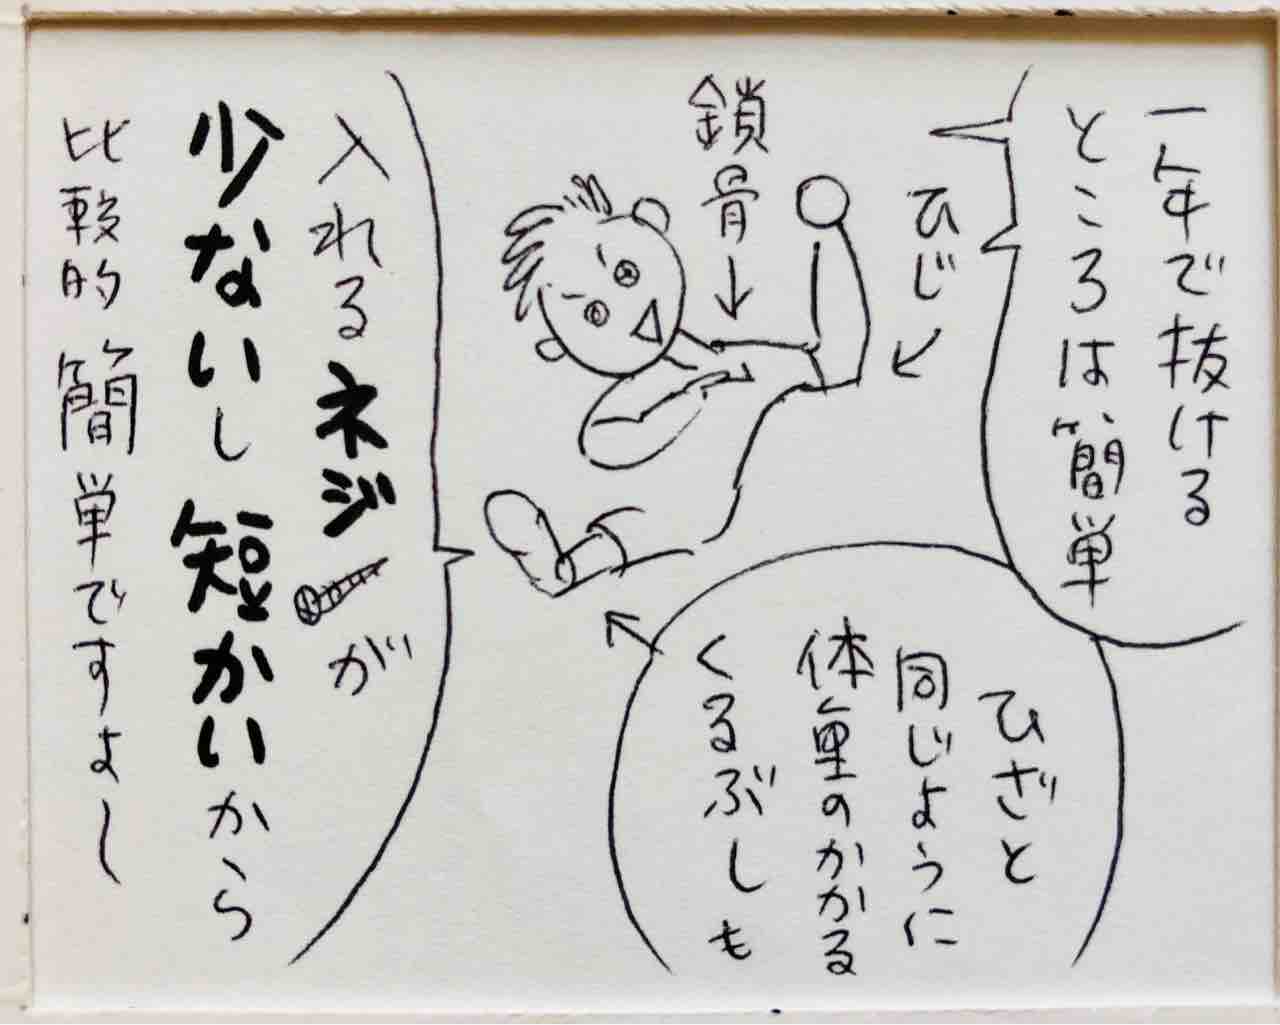 一年で抜ける
ところは簡単
ひじ
鎖骨
ひざと
同じように
体重のかかる
くるぶしも
入れるネジが
少ないし短かいから
比較的簡単ですよー